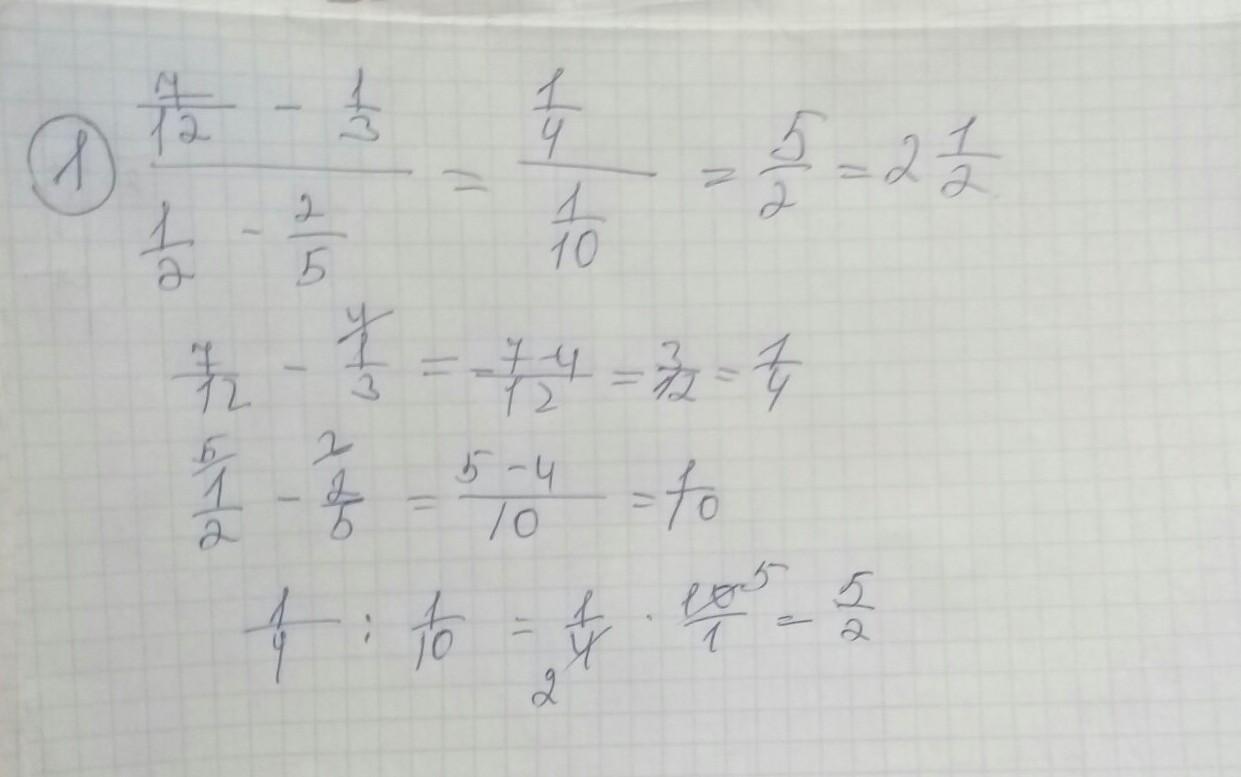 ① (7/12 - 1/3)/(1/2 - 2/5) = (1/4)/(1/10) = 5/2 = 2 1/2
7/12 - 4/ 1/3 = 7-4/12 = 3/12 = 1/4
5/ 1/2 - 2/ 2/5 = 5-4/10 = 1/10
1/4 : 1/10 = 1/4 2 · 10/1 5 = 5/2